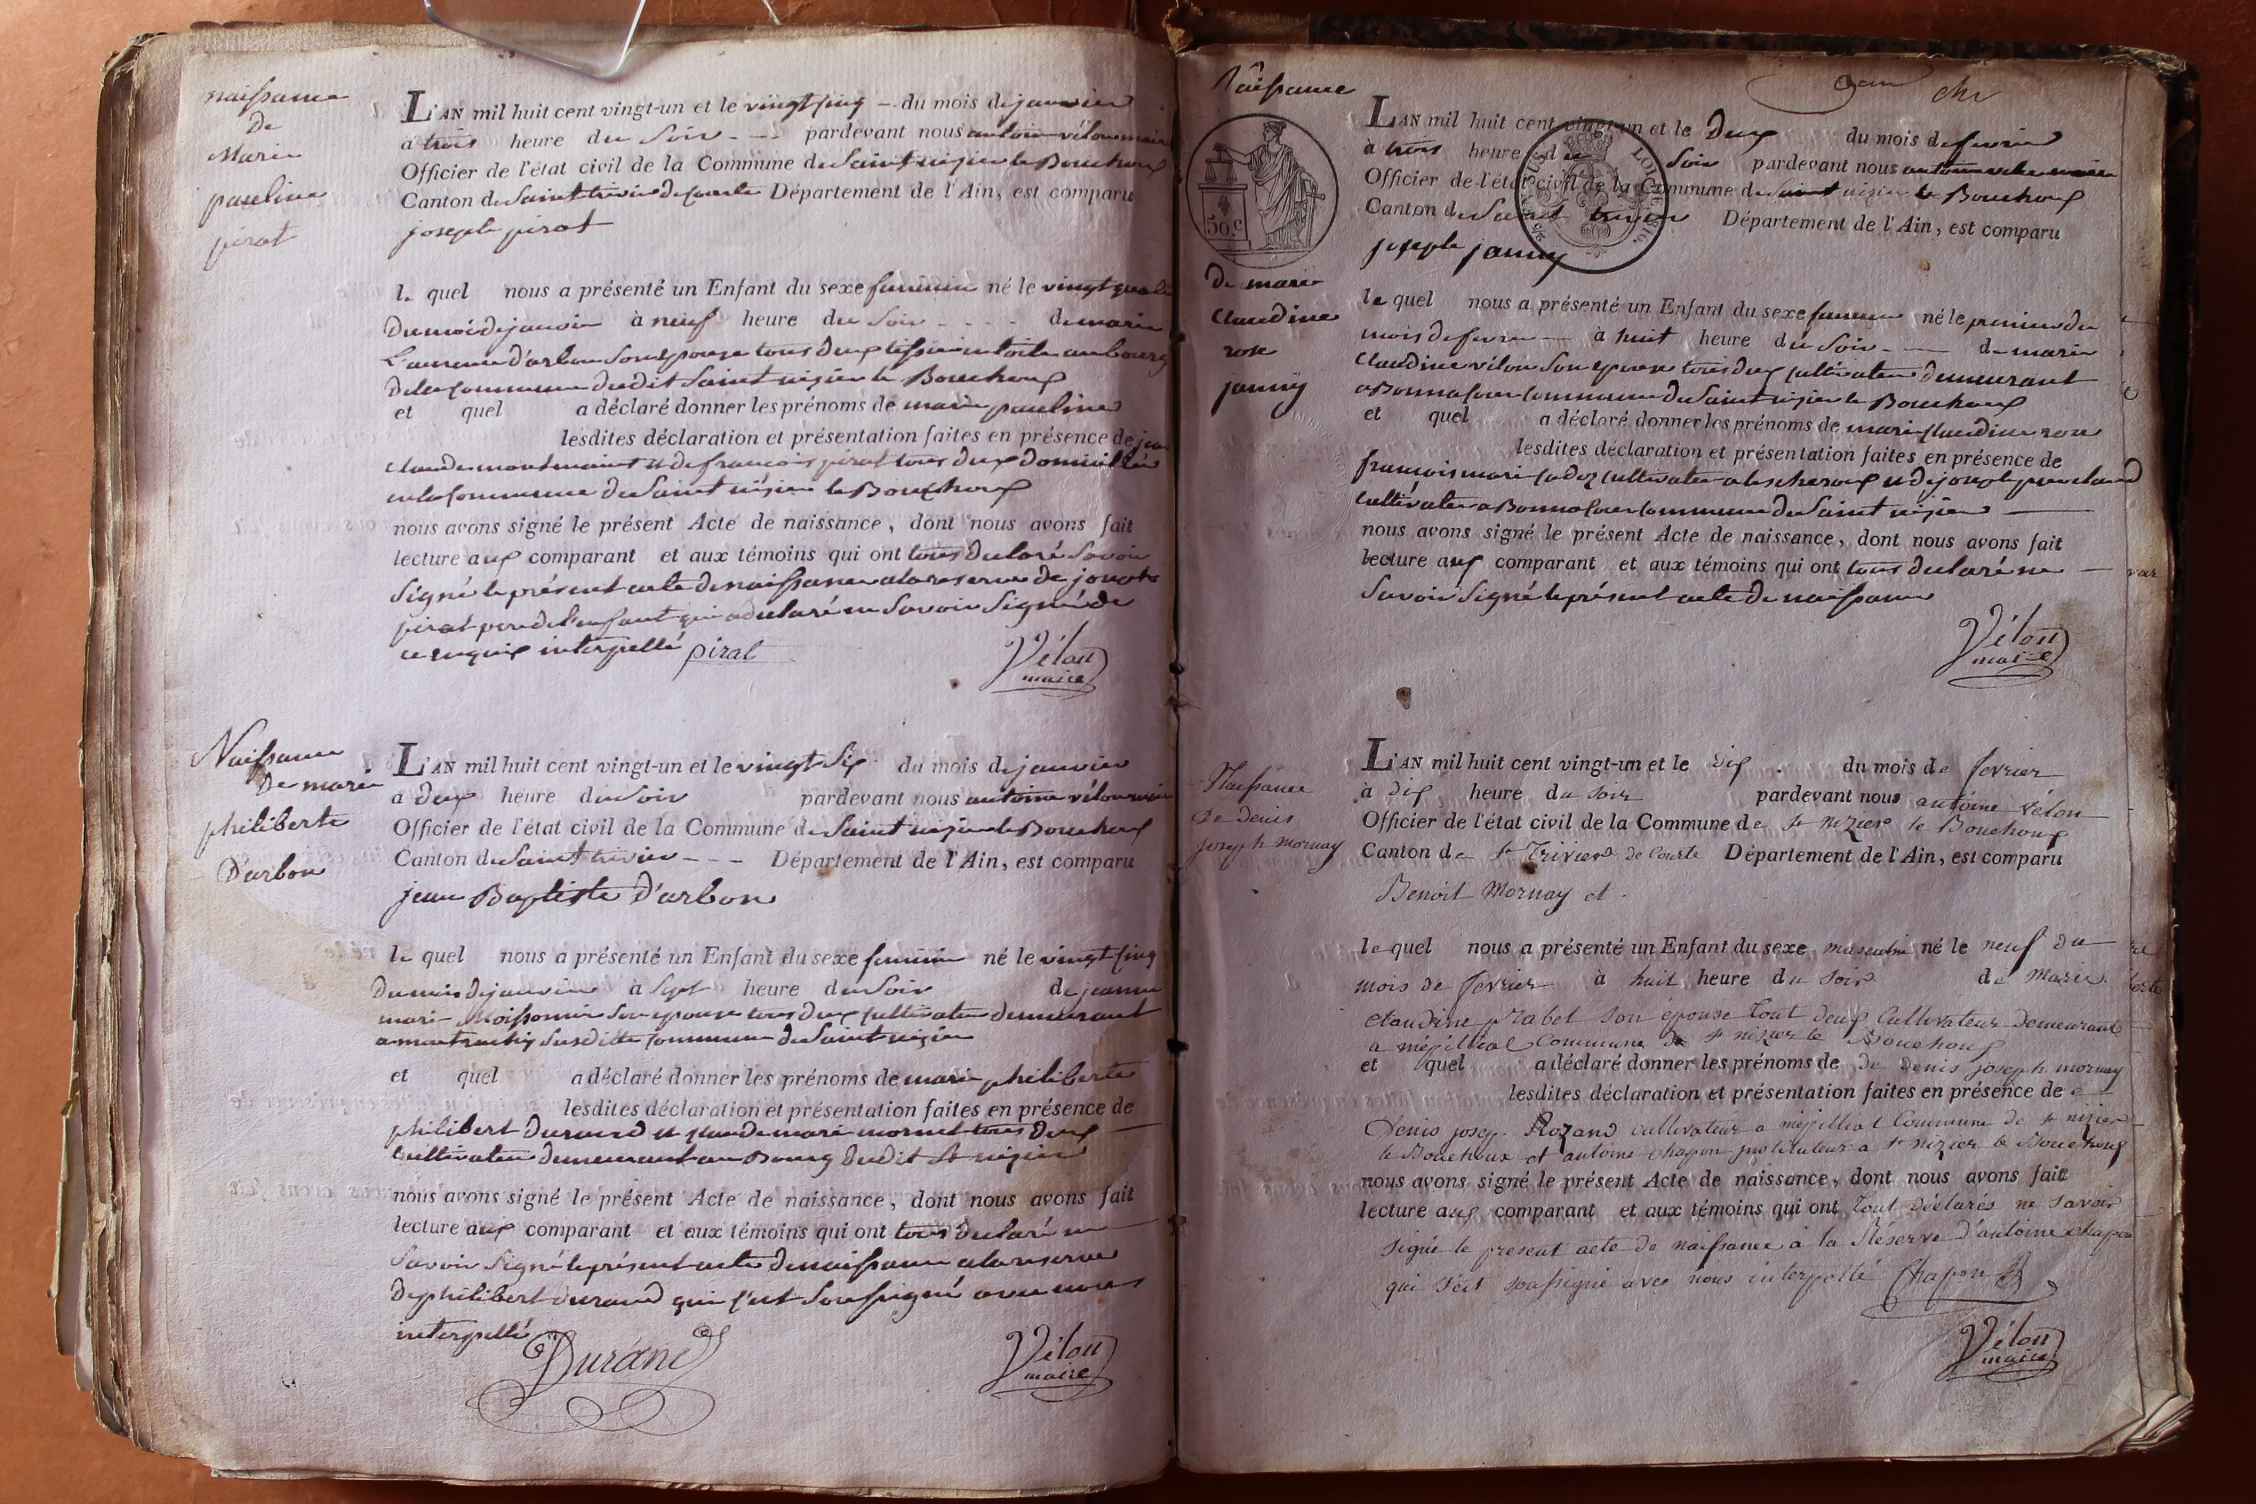 naissance
De
Marie
pauline
pirat
L'AN mil huit cent vingt-un et le vingt cinq du mois de janvier
à trois heure du Soir pardevant nous antoine vélon maire
Officier de l'état civil de la Commune de Saint nizier le Bouchoux
Canton de Saint trivier de courte Département de l'Ain, est comparu
joseph pirat
le quel nous a présenté un Enfant du sexe feminin né le vingt quatre
Du mois de janvier à neuf heure du Soir de marie
D'arbon Son epouse tous deux en toile au bourg
De la commune dudit Saint nizier le Bouchoux
et quel a déclaré donner les prénoms de marie pauline
lesdites déclaration et présentation faites en présence de jean
claude et de francois pirat tous deux domicilié
en la commune de Saint nizier le Bouchoux
nous avons signé le présent Acte de naissance, dont nous avons fait
lecture aux comparant et aux témoins qui ont tous declaré Savoir
Signé le présent acte de naissance a la reserve de joseph
pirat pere de l'enfant qui a declaré ne Savoir Signé de
ce requis interpellé pirat
Vélon
maire
Naissance
De marie
philiberte
D'arbon
L'AN mil huit cent vingt-un et le vingt Six du mois de janvier
a deux heure du Soir pardevant nous antoine vélon maire
Officier de l'état civil de la Commune de Saint nizier le Bouchoux
Canton de Saint trivier Département de l'Ain, est comparu
jean Baptiste D'arbon
le quel nous a présenté un Enfant du sexe feminin né le vingt cinq
Du mois de janvier à Sept heure du Soir de jeanne
marie Moissonnier Son epouse tous deux cultivateur demeurant
a Susditte commune de Saint nizier
et quel a déclaré donner les prénoms de marie philiberte
lesdites déclaration et présentation faites en présence de
philibert Durand et claude marie mornet tous deux
cultivateur demeurant au Bourg dudit St nizier
nous avons signé le présent Acte de naissance, dont nous avons fait
lecture aux comparant et aux témoins qui ont tous declaré ne
Savoir Signé le présent acte de naissance a la reserve
De philibert durand qui c'est Soussigné avec nous
interpellé
Durand
Vélon
maire
Nâissance
50 c
de marie
claudine
rose
janny
L'AN mil huit cent vingt-un et le Deux du mois de fevrier
à trois heure du Soir pardevant nous antoine velon maire
Officier de l'état civil de la Commune de Saint nizier le Bouchoux
Canton de Saint trivier Département de l'Ain, est comparu
joseph janny
le quel nous a présenté un Enfant du sexe feminin né le premier du
mois de fevrier à huit heure du Soir de marie
claudine vélon Son epouse tous deux cultivateur demeurant
a commune de Saint nizier le Bouchoux
et quel a déclaré donner les prénoms de marie claudine rose
lesdites déclaration et présentation faites en présence de
francois marie cultivateur et de joseph
cultivateur a commune de Saint nizier
nous avons signé le présent Acte de naissance, dont nous avons fait
lecture aux comparant et aux témoins qui ont tous declaré ne
Savoir Signé le présent acte de naissance
Vélon
maire
Naissance
De Denis
joseph mornay
L'AN mil huit cent vingt-un et le dix du mois de fevrier
à dix heure du soir pardevant nous antoine Vélon
Officier de l'état civil de la Commune de St nizier le Bouchoux
Canton de St Trivier de Courte Département de l'Ain, est comparu
Benoit Mornay et
le quel nous a présenté un Enfant du sexe masculin né le neuf du
mois de fevrier à huit heure du soir de Marie
claudine Rabel son épouse tout deux Cultivateur demeurant
a mépilliat Commune de St nizier le Bouchoux
et quel a déclaré donner les prénoms de de Denis joseph mornay
lesdites déclaration et présentation faites en présence de
Denis josep. Rozand cultivateur a mépilliat Commune de St nizier
le Bouchoux et antoine chapon instituteur a St nizier le Bouchoux
nous avons signé le présent Acte de naissance, dont nous avons fait
lecture aux comparant et aux témoins qui ont Tout déclarés ne savoir
signé le present acte de naissance a la Réserve d'antoine chapon
qui s'est soussigné avec nous interpellé Chapon
Vélon
maire